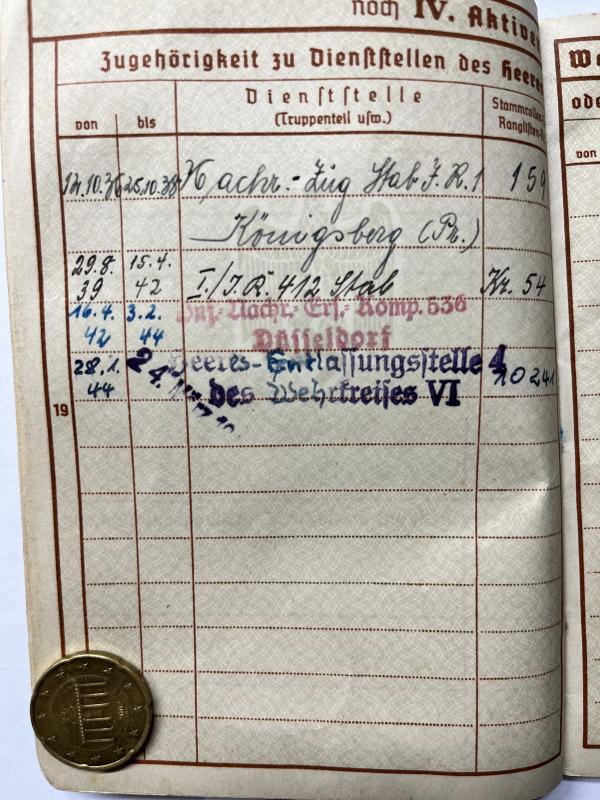 noch IV. Aktive
Zugehörigkeit zu Dienststellen des Heere
We
ode
von
von bis
Dienststelle
(Truppenteil usw.)
Stammrollen-
Ranglisten-
12.10.36 25.10.38 Nachr.-Zug Stab J.R.1 159
Königsberg (Pr.)
29.8. 39 15.4. 42 I./J.R. 412 Stab Nr. 54
16.4. 42 3.2. 44 Inf.-Nachr.-Ers.-Komp. 536
Düsseldorf
28.1. 44 24. Heeres-Entlassungsstelle 4 10241
des Wehrkreises VI
19